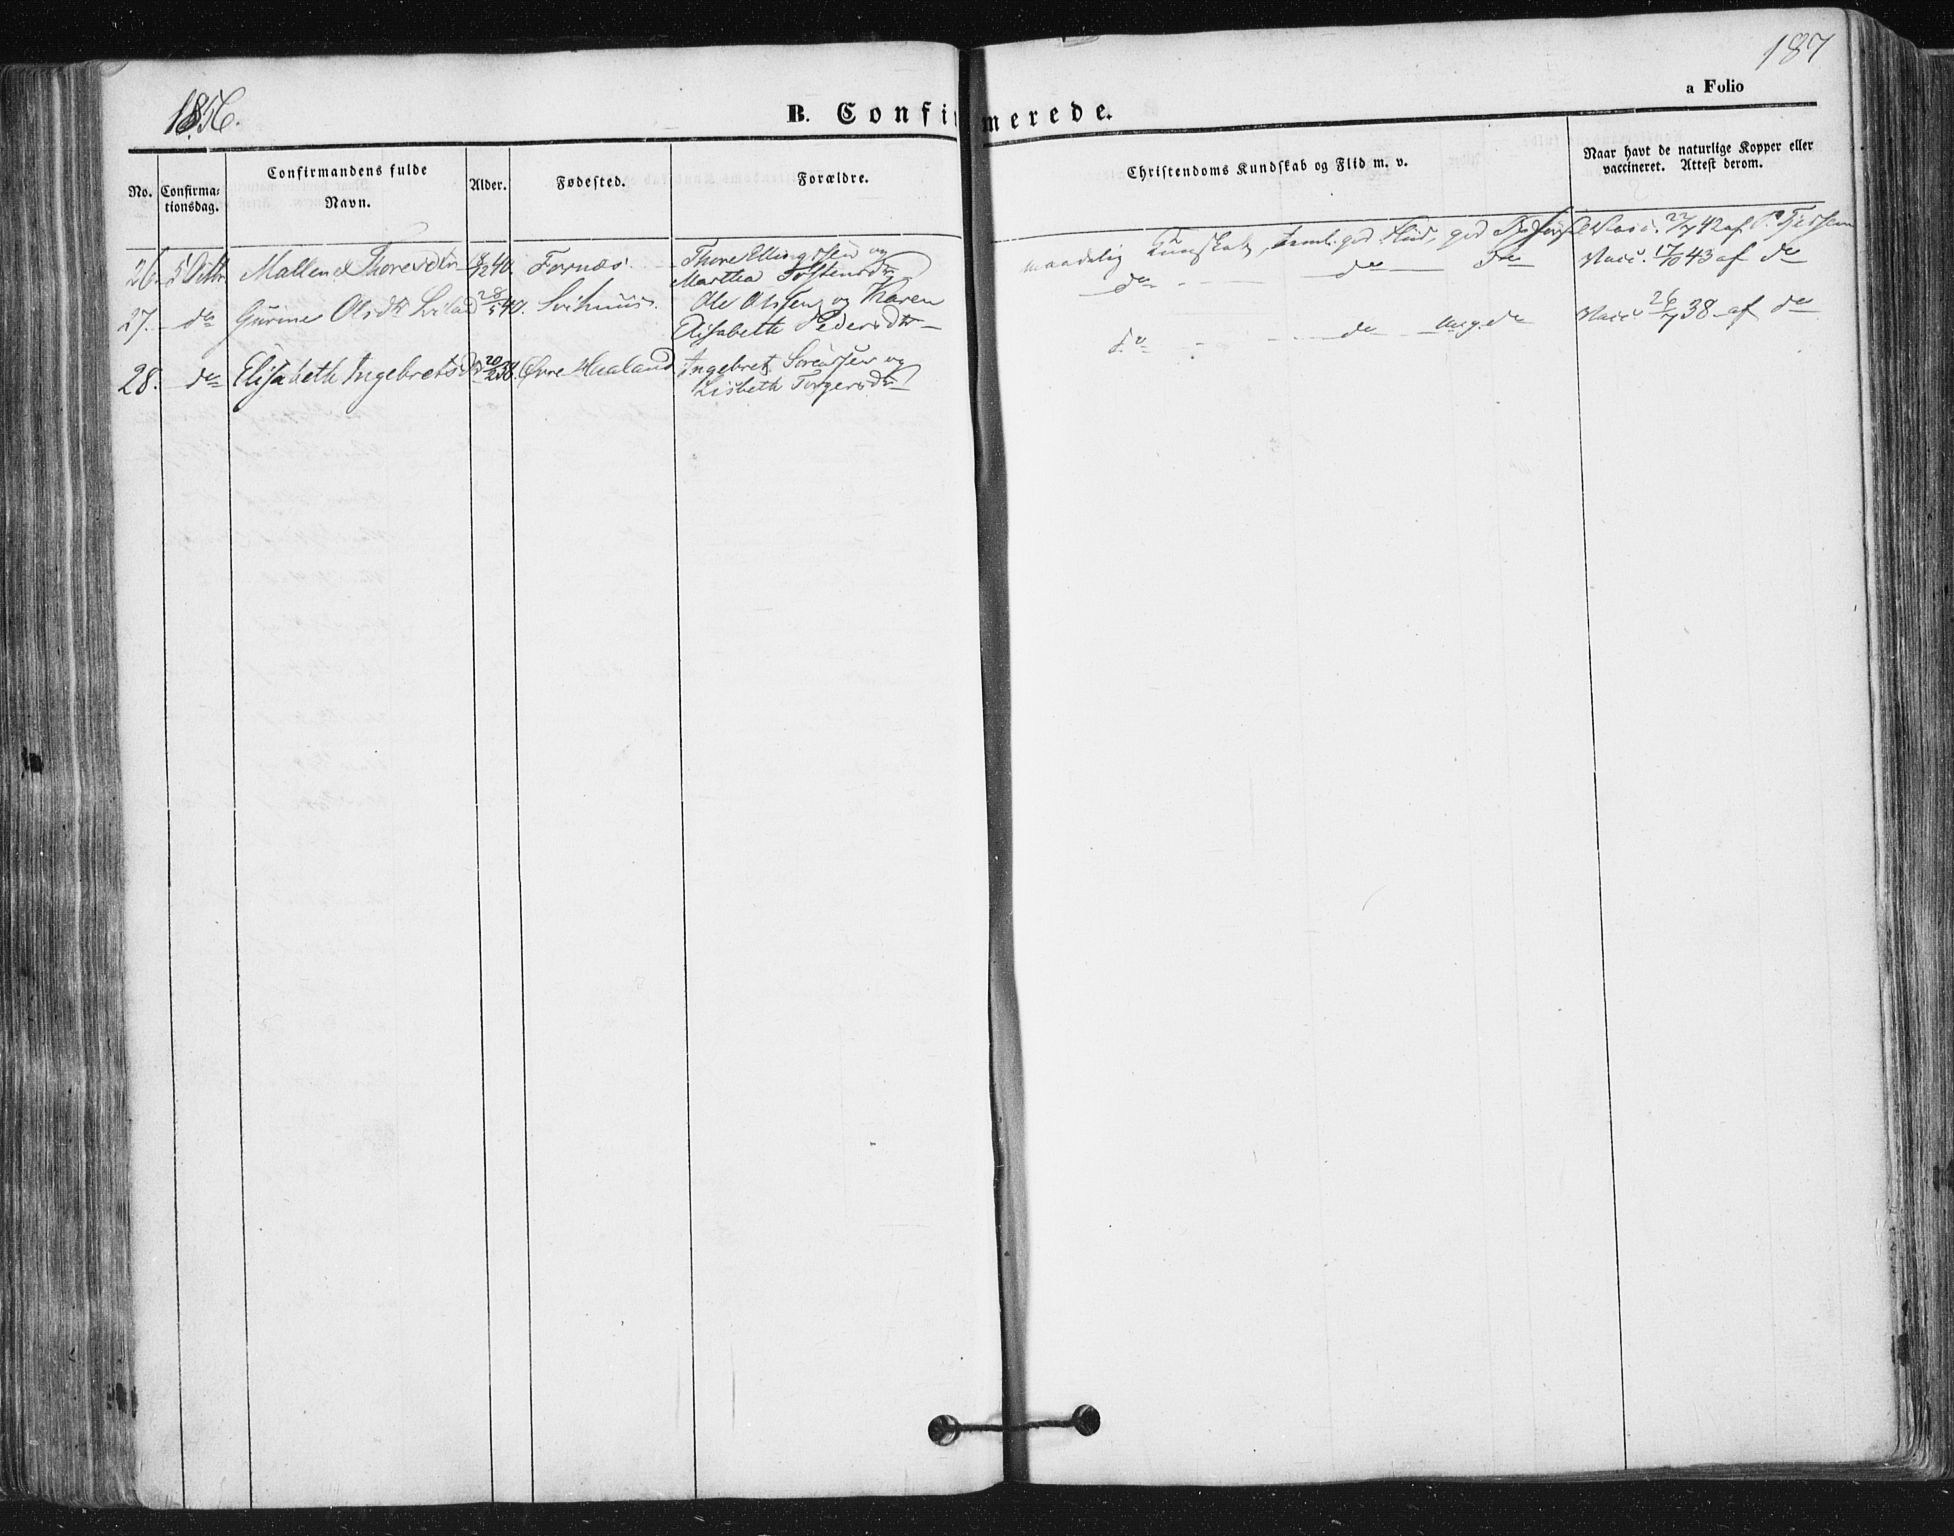 187
a Folio
1856.
B. Confirmerede.
No.
Confirma-
tionsdag.
Confirmandens fulde
Navn.
Alder.
Fødested.
Forældre.
Christendoms Kundskab og Flid m. v.
Naar havt de naturlige Kopper eller
vaccineret. Attest derom.
26. 5 Octbr Mallene Thoresdtr 40. Fornæs. Thore Ellingssen og
Martha
maadelig Kundskab, god Flid, god Vacc. 22/7 42 af
27. do Gurine Olsdr 28/5 40. Svihuus. Ole Olssen og Karen
Elisabeth Pedersdtr
do do do Vacc. 17/10 43 af do
28. do Elisabeth Ingebretsd 20/2 38. Øvre Haaland Ingebret Sørenssen og
Lisbeth Torgersdtr
do do do Vacc. 26/7 38 af do